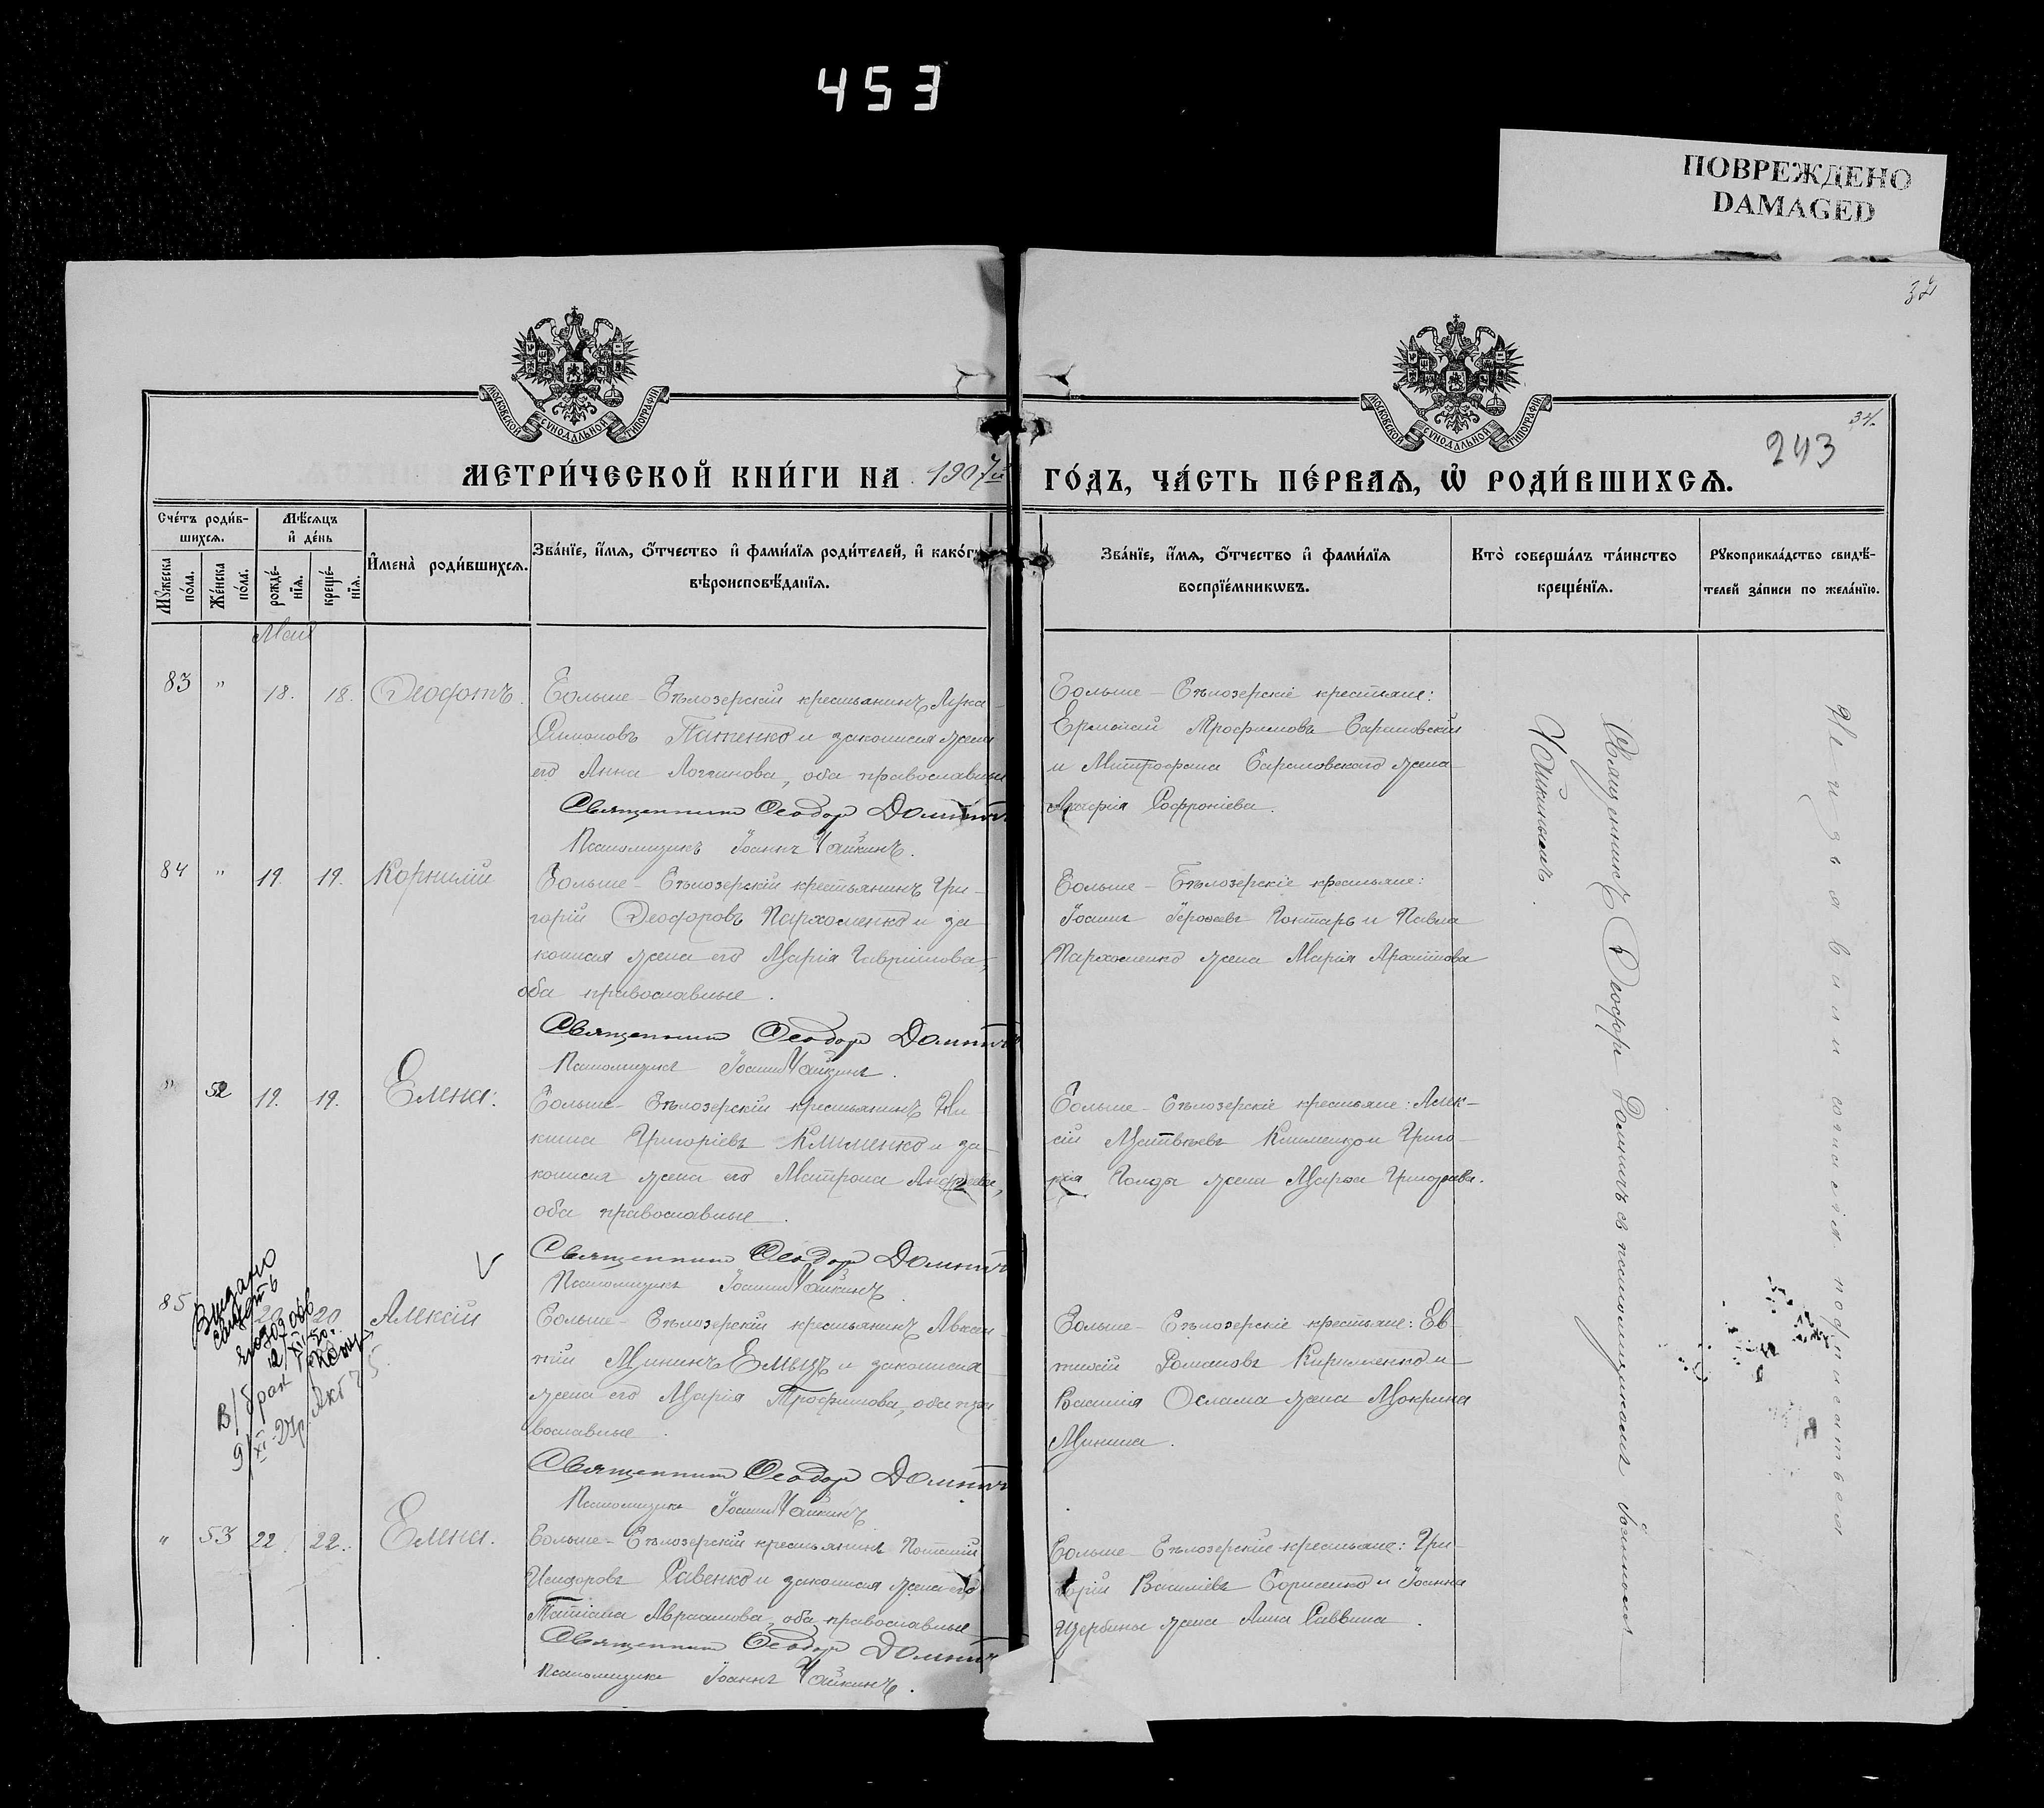 453
ПОВРЕЖДЕНО
DAMAGED
32
МОСКОВСКОЙ СУНОДАЛЬНОЙ ТИПОГРАФІИ
МОСКОВСКОЙ СУНОДАЛЬНОЙ ТИПОГРАФІИ
34.
243
МЕТРИ́ЧЕСКОЙ КНИ́ГИ НА 1907й ГО́ДЪ, ЧА́СТЬ ПЕ́РВАѦ, Ѡ҆ РОДИ́ВШИХСѦ.
Сче́тъ роди́в-
шихсѧ.
Мꙋ́жеска по́ла.
Же́нска по́ла.
Мѣ́сѧцъ
и҆ де́нь
рожде́-
нїѧ.
креще́-
нїѧ.
И҆мена̀ роди́вшихсѧ.
Зва́нїе, и҆́мѧ, ѻ҆́тчество и҆ фами́лїѧ роди́телей, и҆ како́гѡ
вѣроисповѣ́данїѧ.
Зва́нїе, и҆́мѧ, ѻ҆́тчество и҆ фами́лїѧ
воспрїе́мникѡвъ.
Кто̀ соверша́лъ та́инство
креще́нїѧ.
Рꙋкоприкла́дство свидѣ́-
телей за́писи по жела́нїю.
Мая
83 " 18. 18. Ѳеодотъ.
Больше-Бѣлозерскій крестьянинъ Лука
Симоновъ Патенко и законная жена
его Анна Логгинова, оба православные
Священникъ Ѳеодор Домнич
Псаломщикъ Іоаннъ Чайкинъ.
Больше-Бѣлозерскіе крестьяне:
Ермолай Трофимовъ
и Митрофана жена
Софроніева.
84 " 19. 19. Корнилій
Больше-Бѣлозерскій крестьянинъ Гри-
горій Ѳеодоровъ Пархоменко и за
конная жена его Марія Гавриилова,
оба православные.
Священникъ Ѳеодор Домнич
Псаломщикъ Іоаннъ Чайкинъ.
Больше-Бѣлозерскіе крестьяне:
Іоаннъ Гонтарь и Павла
Пархоменко жена Марія
" 52 19. 19. Елена.
Больше-Бѣлозерскій крестьянинъ Ни
кита Григоріевъ Клименко и за-
конная жена его Матрона Андреева,
оба православные.
Священникъ Ѳеодор Домнич
Псаломщикъ Іоаннъ Чайкинъ
Больше-Бѣлозерскіе крестьяне: Алек-
сій Матвѣевъ Клименко и Григо-
рія жена Марѳа Григорьева.
85 20 20 Алексій
Больше-Бѣлозерскій крестьянинъ Авксен-
тій Мининъ Емецъ и законная
жена его Марія Трофимова, оба пра
вославные.
Священникъ Ѳеодор Домнич
Псаломщикъ Іоаннъ Чайкинъ
Больше-Бѣлозерскіе крестьяне: Ев
Романовъ Кириленко и
Василія Ослама жена Мокрина
Минина.
" 53 22. 22. Елена.
Больше-Бѣлозерскій крестьянинъ
Исидоровъ Савенко и законная жена его
Татіана Авраамова, оба православные
Священникъ Ѳеодор Домнич
Псаломщикъ Іоаннъ Чайкинъ.
Больше-Бѣлозерскіе крестьяне: Гри-
горій Василіевъ Борисенко и Іоанна
Щербины жена Анна Саввина.
Священникъ Ѳеодоръ Домничъ съ псаломщикомъ Іоанномъ
Чайкинымъ.
Не изъявили согласія подписаться